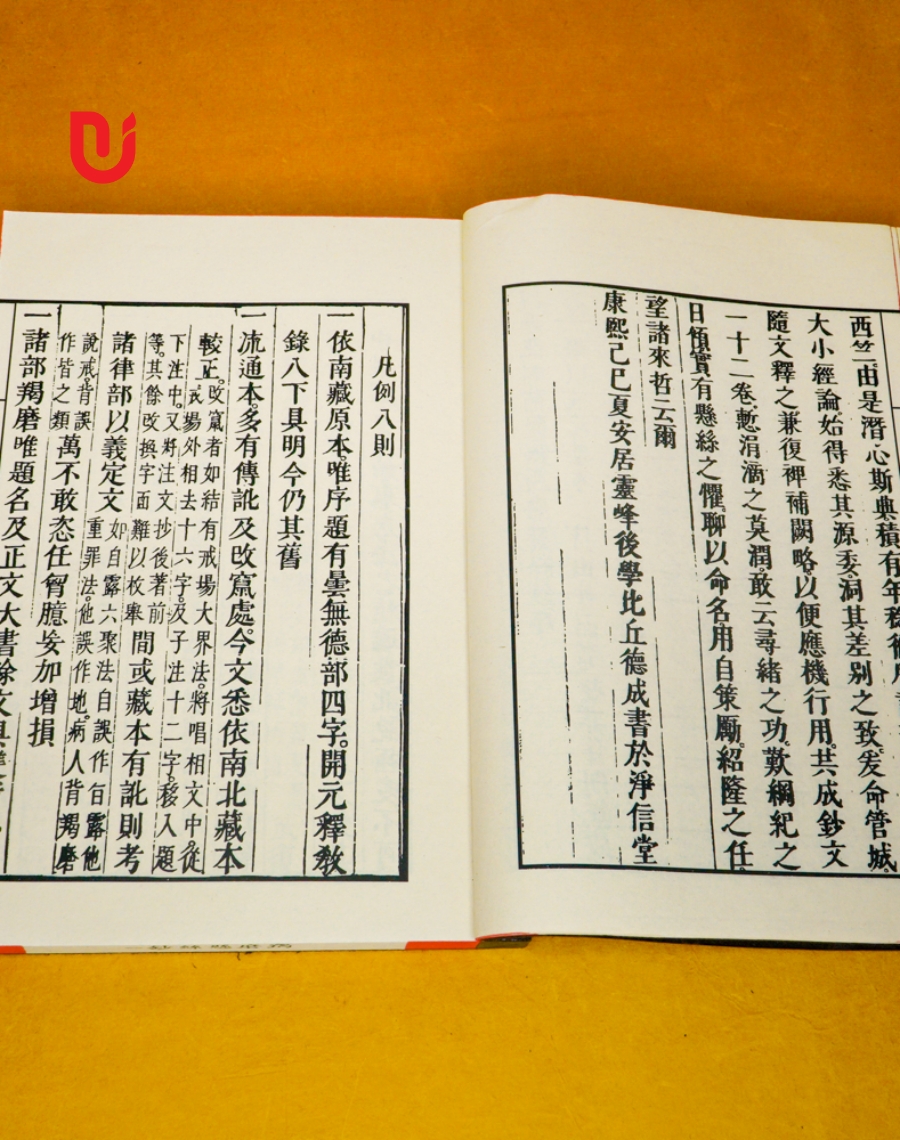 西竺由是潛心斯典積有年
大小經論始得悉其源委洞其差別之致爰命管城
隨文釋之兼復裨補闕略以便應機行用共成鈔文
一十二卷慙涓滴之莫潤敢云尋緒之功歎綱紀之
日頹實有懸絲之懼聊以命名用自策勵紹隆之任
望諸來哲云爾
康熙己巳夏安居靈峰後學比丘德成書於淨信堂
凡例八則
一依南藏原本唯序題有曇無德部四字開元釋教
錄八下具明今仍其舊
一流通本多有傳訛及改竄處今文悉依南北藏本
較正改竄者如結有戒場大界法將唱相文中從
戒場外相去十六字及子注十二字移入題
下注中又將注文抄後著前
等其餘改換字面難以枚舉間或藏本有訛則考
諸律部以義定文如自露六聚法自誤作百露他
重罪法他誤作地病人背羯磨
說戒背誤
作皆之類萬不敢恣任胷臆妄加增損
一諸部羯磨唯題名及正文大書餘文